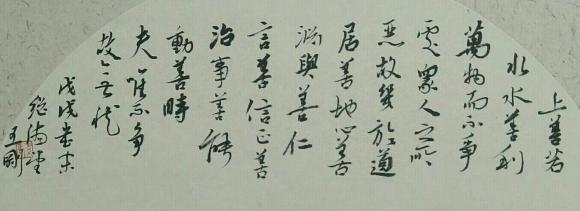 上善若
水水善利
萬物而不爭
處眾人之所
惡故幾於道
居善地心善
淵與善仁
言善信正善
治事善能
動善時
夫唯不爭
故无
戊戌歲末
德經
王剛